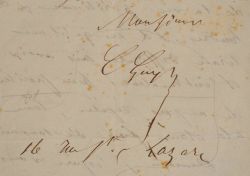 Monsieur
C Guys
16 rue St. Lazare